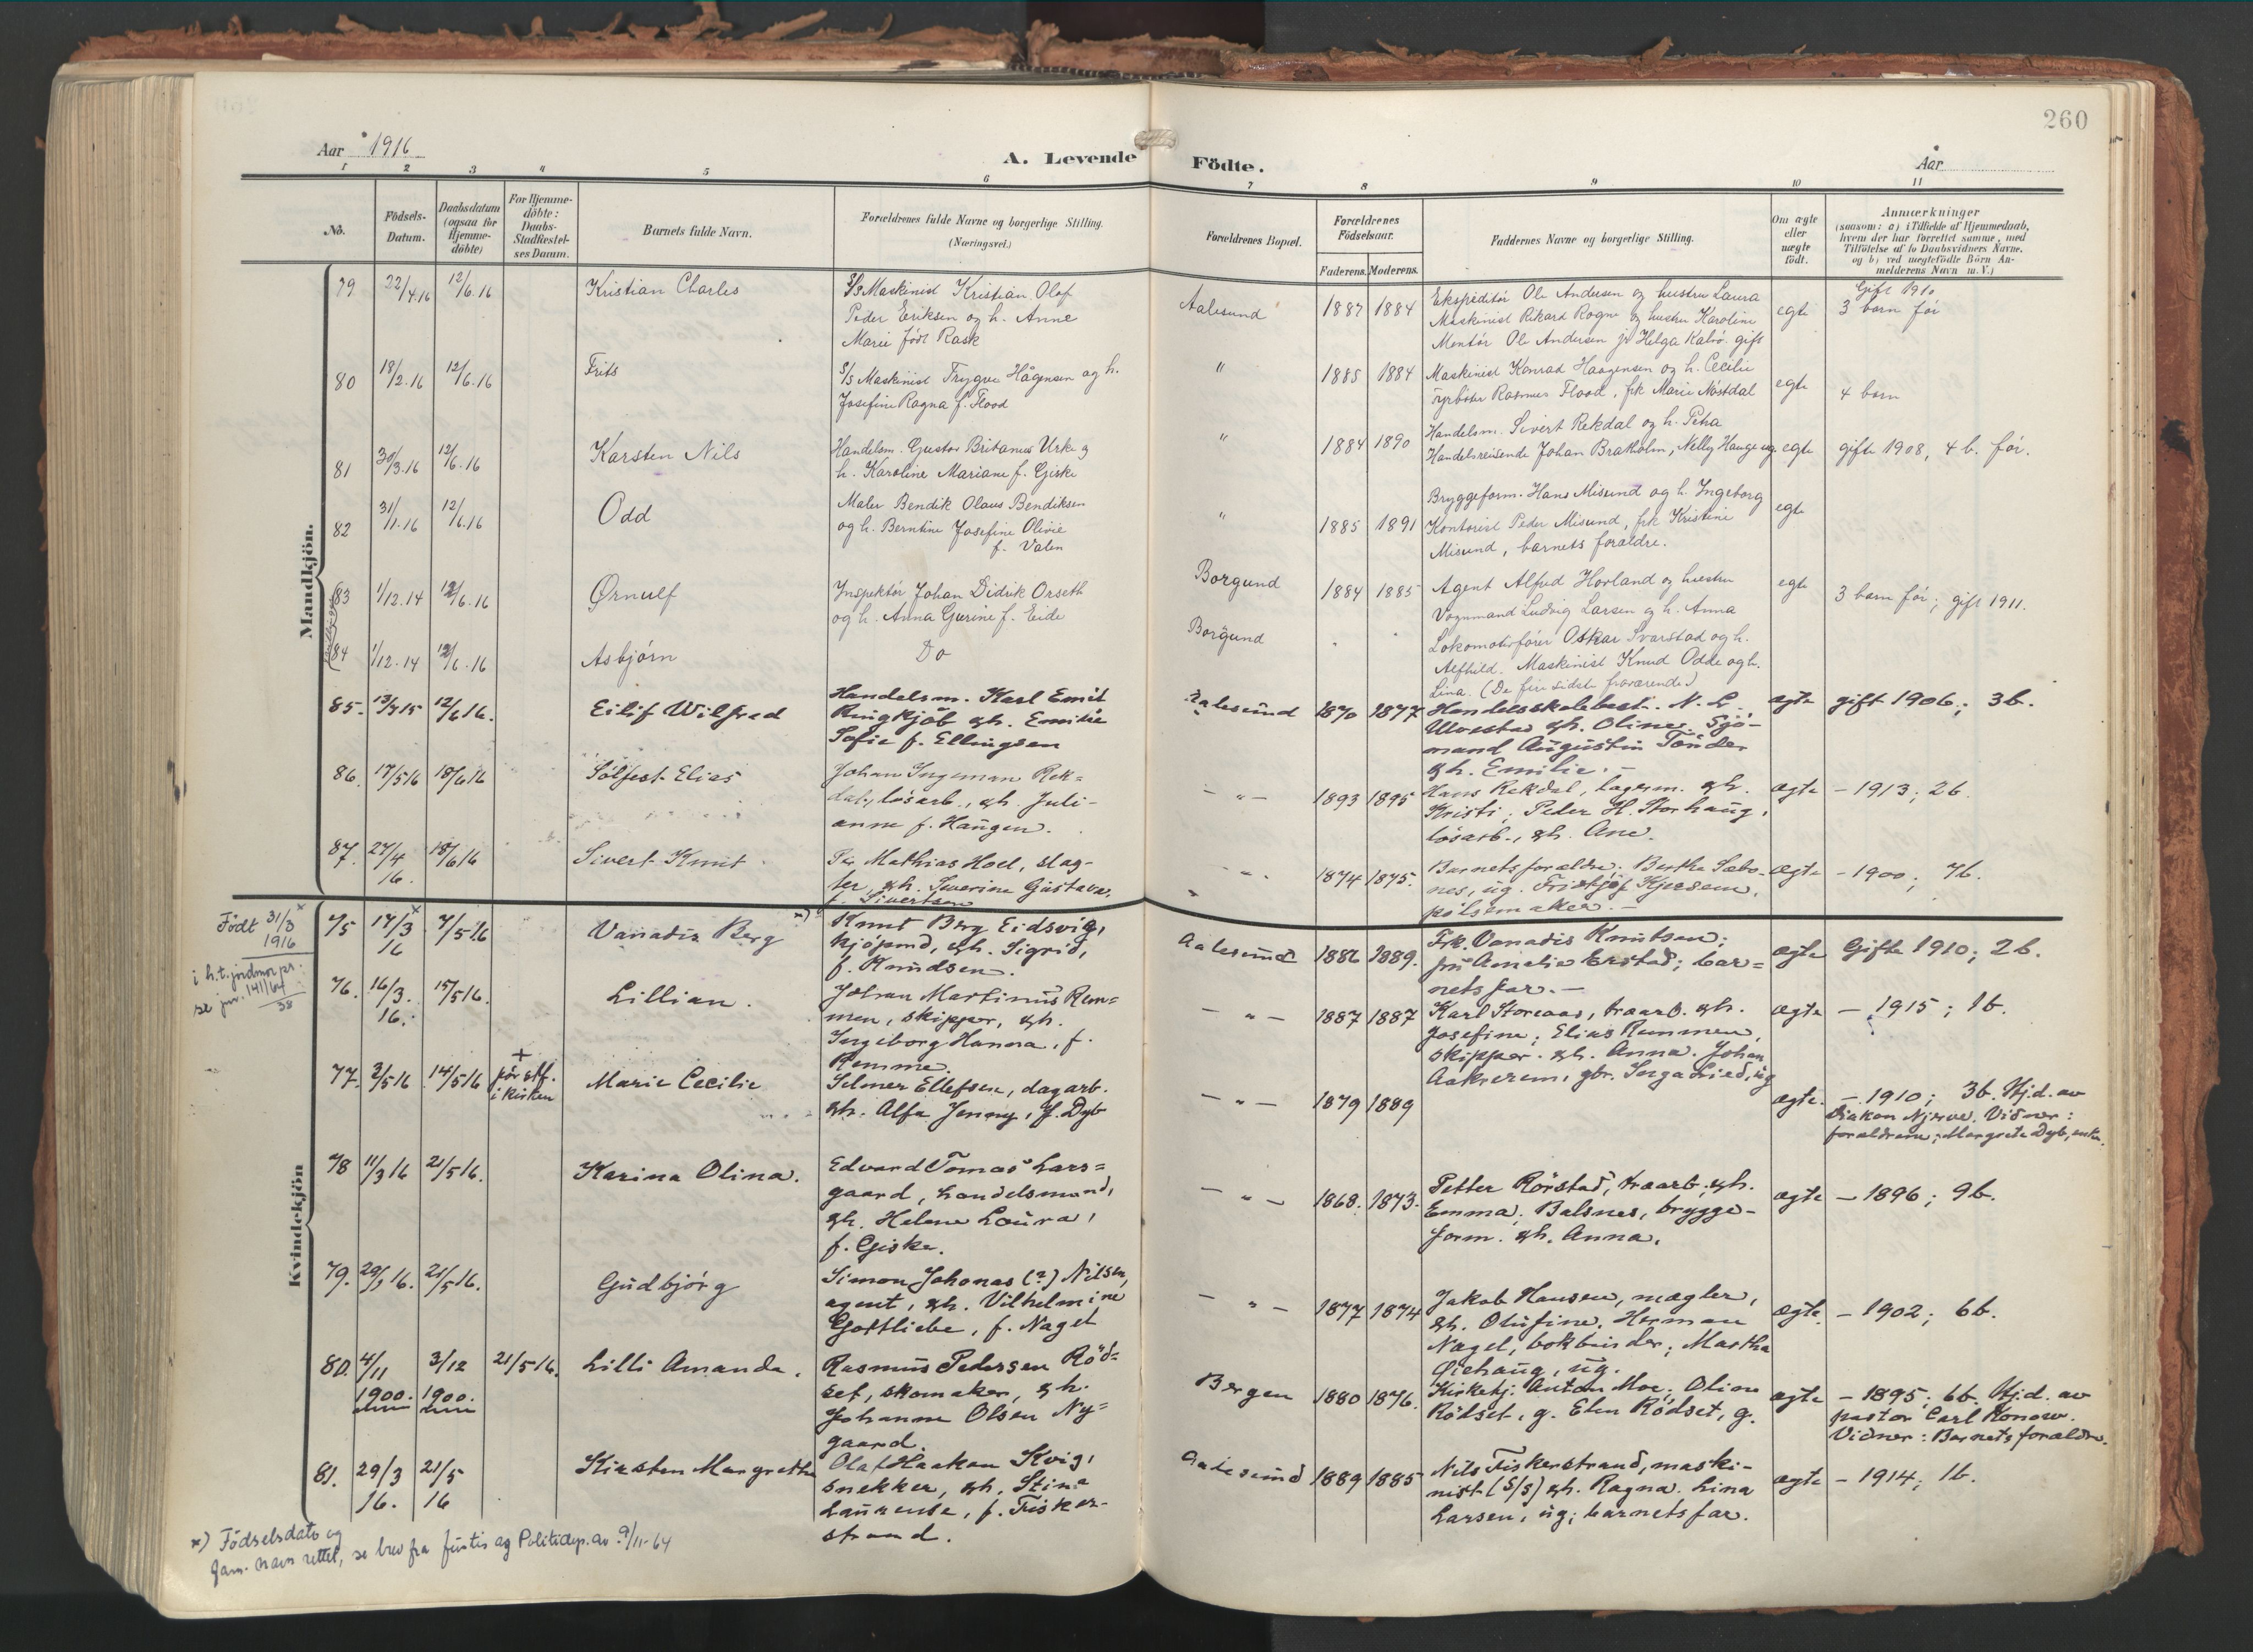 260
Aar 1916
A. Levende Födte.
Aar
1 2 3 4 5 6 7 8 9 10 11
No.
Födsels-Datum.
Daabsdatum (ogsaa for Hjemmedöbte)
For Hjemmedöbte: Daabs-Stadfestelses Datum.
Barnets fulde Navn.
Forældrenes fulde Navne og borgerlige Stilling.
(Næringsvei.)
Forældrenes Bopæl.
Forældrenes Födselsaar.
Faderens. Moderens.
Faddernes Navne og borgerlige Stilling.
Om ægte eller uægte födt.
Anmærkninger
(saasom: a) i Tilfælde af Hjemmedaab, hvem der har forrettet samme, med Tilföielse af to Daabsvidners Navne. og b) ved uægtefödte Börn Anmelderens Navn m.V.)
Mandkjön.
79 22/4.16 12/6.16 Kristian Charles
S/S Maskinist Kristian Olaf
Peder Eriksen og h. Anne
Marie född Rask
Aalesund 1887 1884
Ekspeditör Ole Andersen og hustru Laura
Maskinist Rikard Rogne og hustru Karoline
Montör Ole Andersen jr Helga Kalvö gift
egte
Gift 1910
3 barn för
80 18/2.16 12/6.16 Frits
S/S Maskinist Trygve Hågensen og h.
Josefine Ragna f. Flood
" 1885 1884
Maskinist Konrad Haagensen og h. Cecilie
Fyrböter Rasmus Flood, frk Marie Nöstdal
egte 4 barn
81 30/3.16 12/6.16 Karsten Nils
Handelsm. Gustav Britanus Urke og
h. Karoline Mariane f. Giske
" 1884 1890
Handelsm. Sivert Rekdal og h. Petra
Handelsreisende Johan Bratholm, Nelly Hauge ug.
egte gifte 1908, 4 b. för.
82 31/1.16 12/6.16 Odd
Maler Bendik Olaus Bendiksen
og h. Berntine Josefine Olivie
f. Valen
" 1885 1891
Bryggeform. Hans Misund og h. Ingeborg
Kontorist Peder Misund, frk Kristine
Misund, barnets forældre.
egte
83 1/12.14 12/6.16 Ørnulf
Inspektör Johan Didrik Orseth
og h. Anna Gurine f. Eide
Borgund 1884 1885
Agent Alfred Hovland og hustru
Vognmand Ludvig Larsen og h. Anna
egte 3 barn för; gift 1911.
84 1/12.14 12/6.16 Asbjörn
Do
Borgund
Lokomotivförer Oskar Svarstad og h.
Alfhild. Maskinist Knud Odde og h.
Lina. (De fire sidste fraværende)
85. 13/3 15 12/6 16. Eilif Wilfred
Handelsm. Karl Emil
Ringkjöb og h. Emilie
Sofie f. Ellingsen
Aalesund 1870 1877
Handelsskolebest. N. L.
Ulvestad og h. Oline. Sjö-
mand Augustin Tönder
og h. Emilie. –
ægte gift 1906; 3b.
86. 17/5 16 18/6 16 Sölfest Elias
Johan Ingeman Rek=
dal, lösarb., og h. Juli-
anne f. Haugen.
– " – 1893 1895
Hans Rekdal, lagerm. og h.
Kristi; Peder H. Storhaug,
lösarb., og h. Ane.
ægte – 1913; 2b.
87. 27/4 16. 18/6 16 Sivert Knut
Per Mathias Hoel, slag-
ter, og h. Severine Gustava,
f. Sivertsen
– " – 1874 1875.
Barnets forældre; Bertha Sæbö-
nes, ug. Fridtjof Kjersem,
pölsemaker. –
ægte – 1900; 7b.
Kvindekjön
Födt 31/3 x
1916
i h.t. jordmor pr.:
se jnr. 141/64
38
75 17/3 x 16 7/5 16 Vanadis Berg x)
Knut Berg Eidsvig,
kjöpmd, og h. Sigrid,
f. Knudsen.
Aalesund 1886 1889.
Frk. Vanadis Knutsen;
fru Amalie Erstad; bar=
nets far. –
ægte Gifte 1910; 2b.
76. 16/3. 16. 15/5 16. Lillian.
Johan Martinus Rem=
men, skipper, og h.
Ingeborg Hanna, f.
Remme.
– " – 1887 1887
Karl Storeaas, traarb. og h.
Josefine; Elias Remmen,
skipper. og h. Anna. Johan
Aakrerem, gbr. Inga Lied, ug
ægte – 1915; 1b.
77. 2/5 16 14/5 16 + för stf. i kirken Marie Cecilie
Selmer Ellefsen, dagarb.
og h. Alfa Jenny, f. Dyb
– " – 1879 1889
ægte. – 1910; 3b. Hj.d. av
Diakon Njerve. Vidner:
forældrene; Margrete Dyb, enke.
78 11/3 16 21/5 16. Karina Olina.
Edvard Tomas Lars=
gaard, handelsmand,
og h. Helene Laura,
f. Giske.
– " – 1868. 1873.
Petter Rörstad, traarb., og h.
Emma; Balsnes, brygge-
form. og h. Anna.
ægte – 1896; 9b.
79. 29/3 16. 21/5 16. Gudbjörg
Simon Johanas (?) Nilsen,
agent, og h. Vilhelmine
Gottliebe, f. Nagel
– " – 1877 1874
Jakob Hansen, mægler,
og h. Olufine. Herman
Nagel, bokbinder; Martha
Öiehaug, ug.
ægte. – 1902; 6b.
80. 4/11 1900. 3/12 1900. 21/5 16. Lilli Amanda.
Rasmus Pedersen Röd=
set, skomaker, og h.
Johanne Olsen Ny=
gaard.
Bergen 1880 1876.
Kirketj. Anton Moe; Oline
Rödset, g. Elen Rödset, g.
ægte – 1895; 6b. Hj.d. av
pastor Carl Konow.
Vidner: Barnets forældre.
81. 29/3 16. 21/5 16 Kirsten Margrethe
Olaf Haakon Kvig,
snekker, og h. Stine
Laurense, f. Fisker-
strand.
Aalesund 1889 1885
Nils Fiskerstrand, maski-
nist (S/S) og h. Ragna. Lina
Larsen, ug; barnets far.
ægte – 1914; 1b.
x) Födselsdato og
fam. navn rettet, se brev fra Justis og Politidep. av 9/11-64